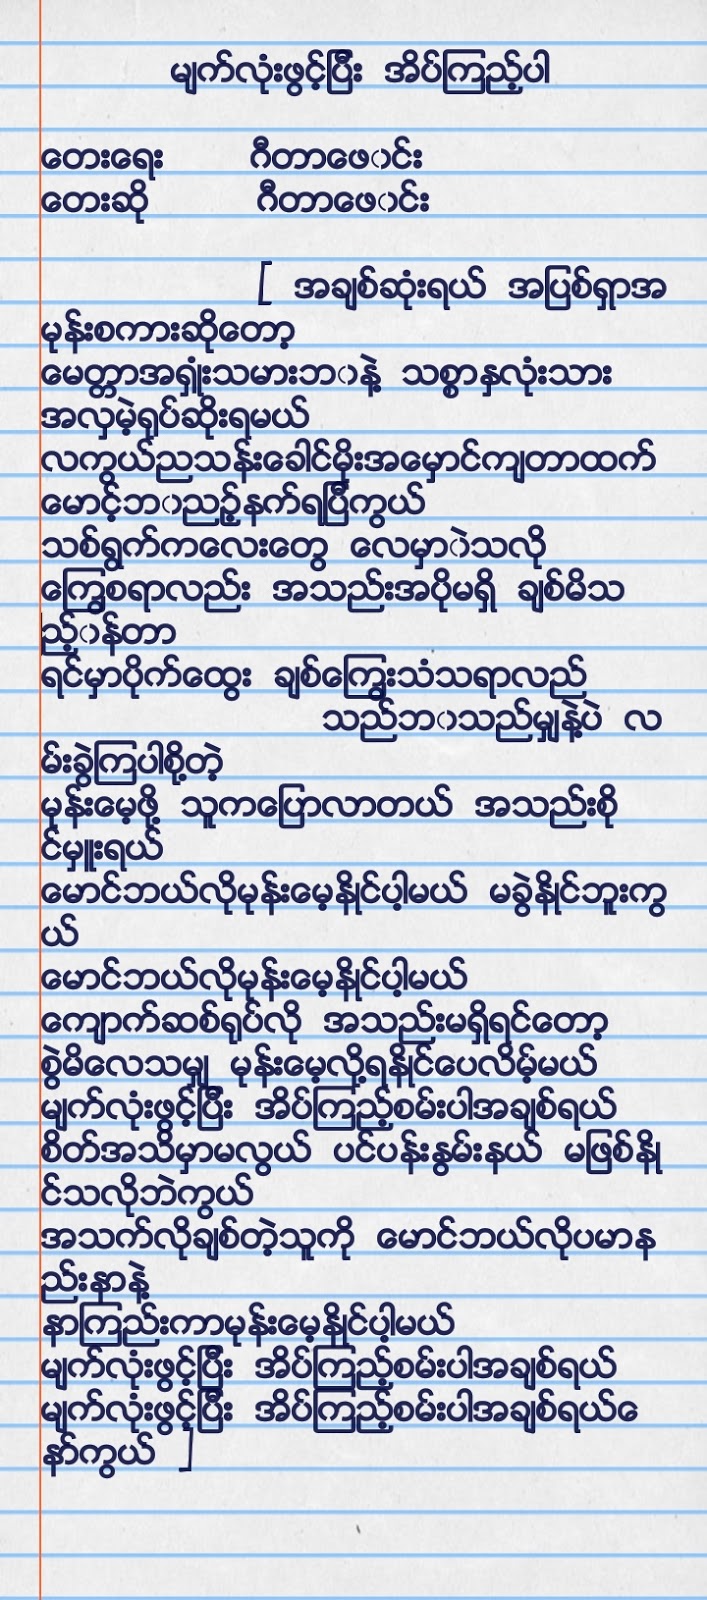 မျက်လုံးဖွင့်ပြီး အိပ်ကြည့်ပါ
တေးရေး ဂီတာဖေ◌င်း
တေးဆို ဂီတာဖေ◌င်း
[ အချစ်ဆုံးရယ် အပြစ်ရှာအ
မုန်းစကားဆိုတော့
မေတ္တာအရှုံးသမားဘ◌နဲ့ သစ္စာနှလုံးသား
အလှမဲ့ရုပ်ဆိုးရမယ်
လကွယ်ညသန်းခေါင်မိုးအမှောင်ကျတာထက်
မောင့်ဘ◌ညဉ့်နက်ရပြီကွယ်
သစ်ရွက်ကလေးတွေ လေမှာ◌ဲသလို
ကြွေစရာလည်း အသည်းအပိုမရှိ ချစ်မိသ
ည့်◌န်တာ
ရင်မှာပိုက်ထွေး ချစ်ကြွေးသံသရာလည်
သည်ဘ◌သည်မျှနဲ့ပဲ လ
မ်းခွဲကြပါစို့တဲ့
မုန်းမေ့ဖို့ သူကပြောလာတယ် အသည်းစို
င်မှူးရယ်
မောင်ဘယ်လိုမုန်းမေ့နိုင်ပါ့မယ် မခွဲနိုင်ဘူးကွ
ယ်
မောင်ဘယ်လိုမုန်းမေ့နိုင်ပါ့မယ်
ကျောက်ဆစ်ရုပ်လို အသည်းမရှိရင်တော့
စွဲမိလေသမျှ မုန်းမေ့လို့ရနိုင်ပေလိမ့်မယ်
မျက်လုံးဖွင့်ပြီး အိပ်ကြည့်စမ်းပါအချစ်ရယ်
စိတ်အသိမှာမလွယ် ပင်ပန်းနွမ်းနယ် မဖြစ်နို
င်သလိုဘဲကွယ်
အသက်လိုချစ်တဲ့သူကို မောင်ဘယ်လိုပမာန
ည်းနာနဲ့
နာကြည်းကာမုန်းမေ့နိုင်ပါ့မယ်
မျက်လုံးဖွင့်ပြီး အိပ်ကြည့်စမ်းပါအချစ်ရယ်
မျက်လုံးဖွင့်ပြီး အိပ်ကြည့်စမ်းပါအချစ်ရယ်ေ
နာ်ကွယ် ]